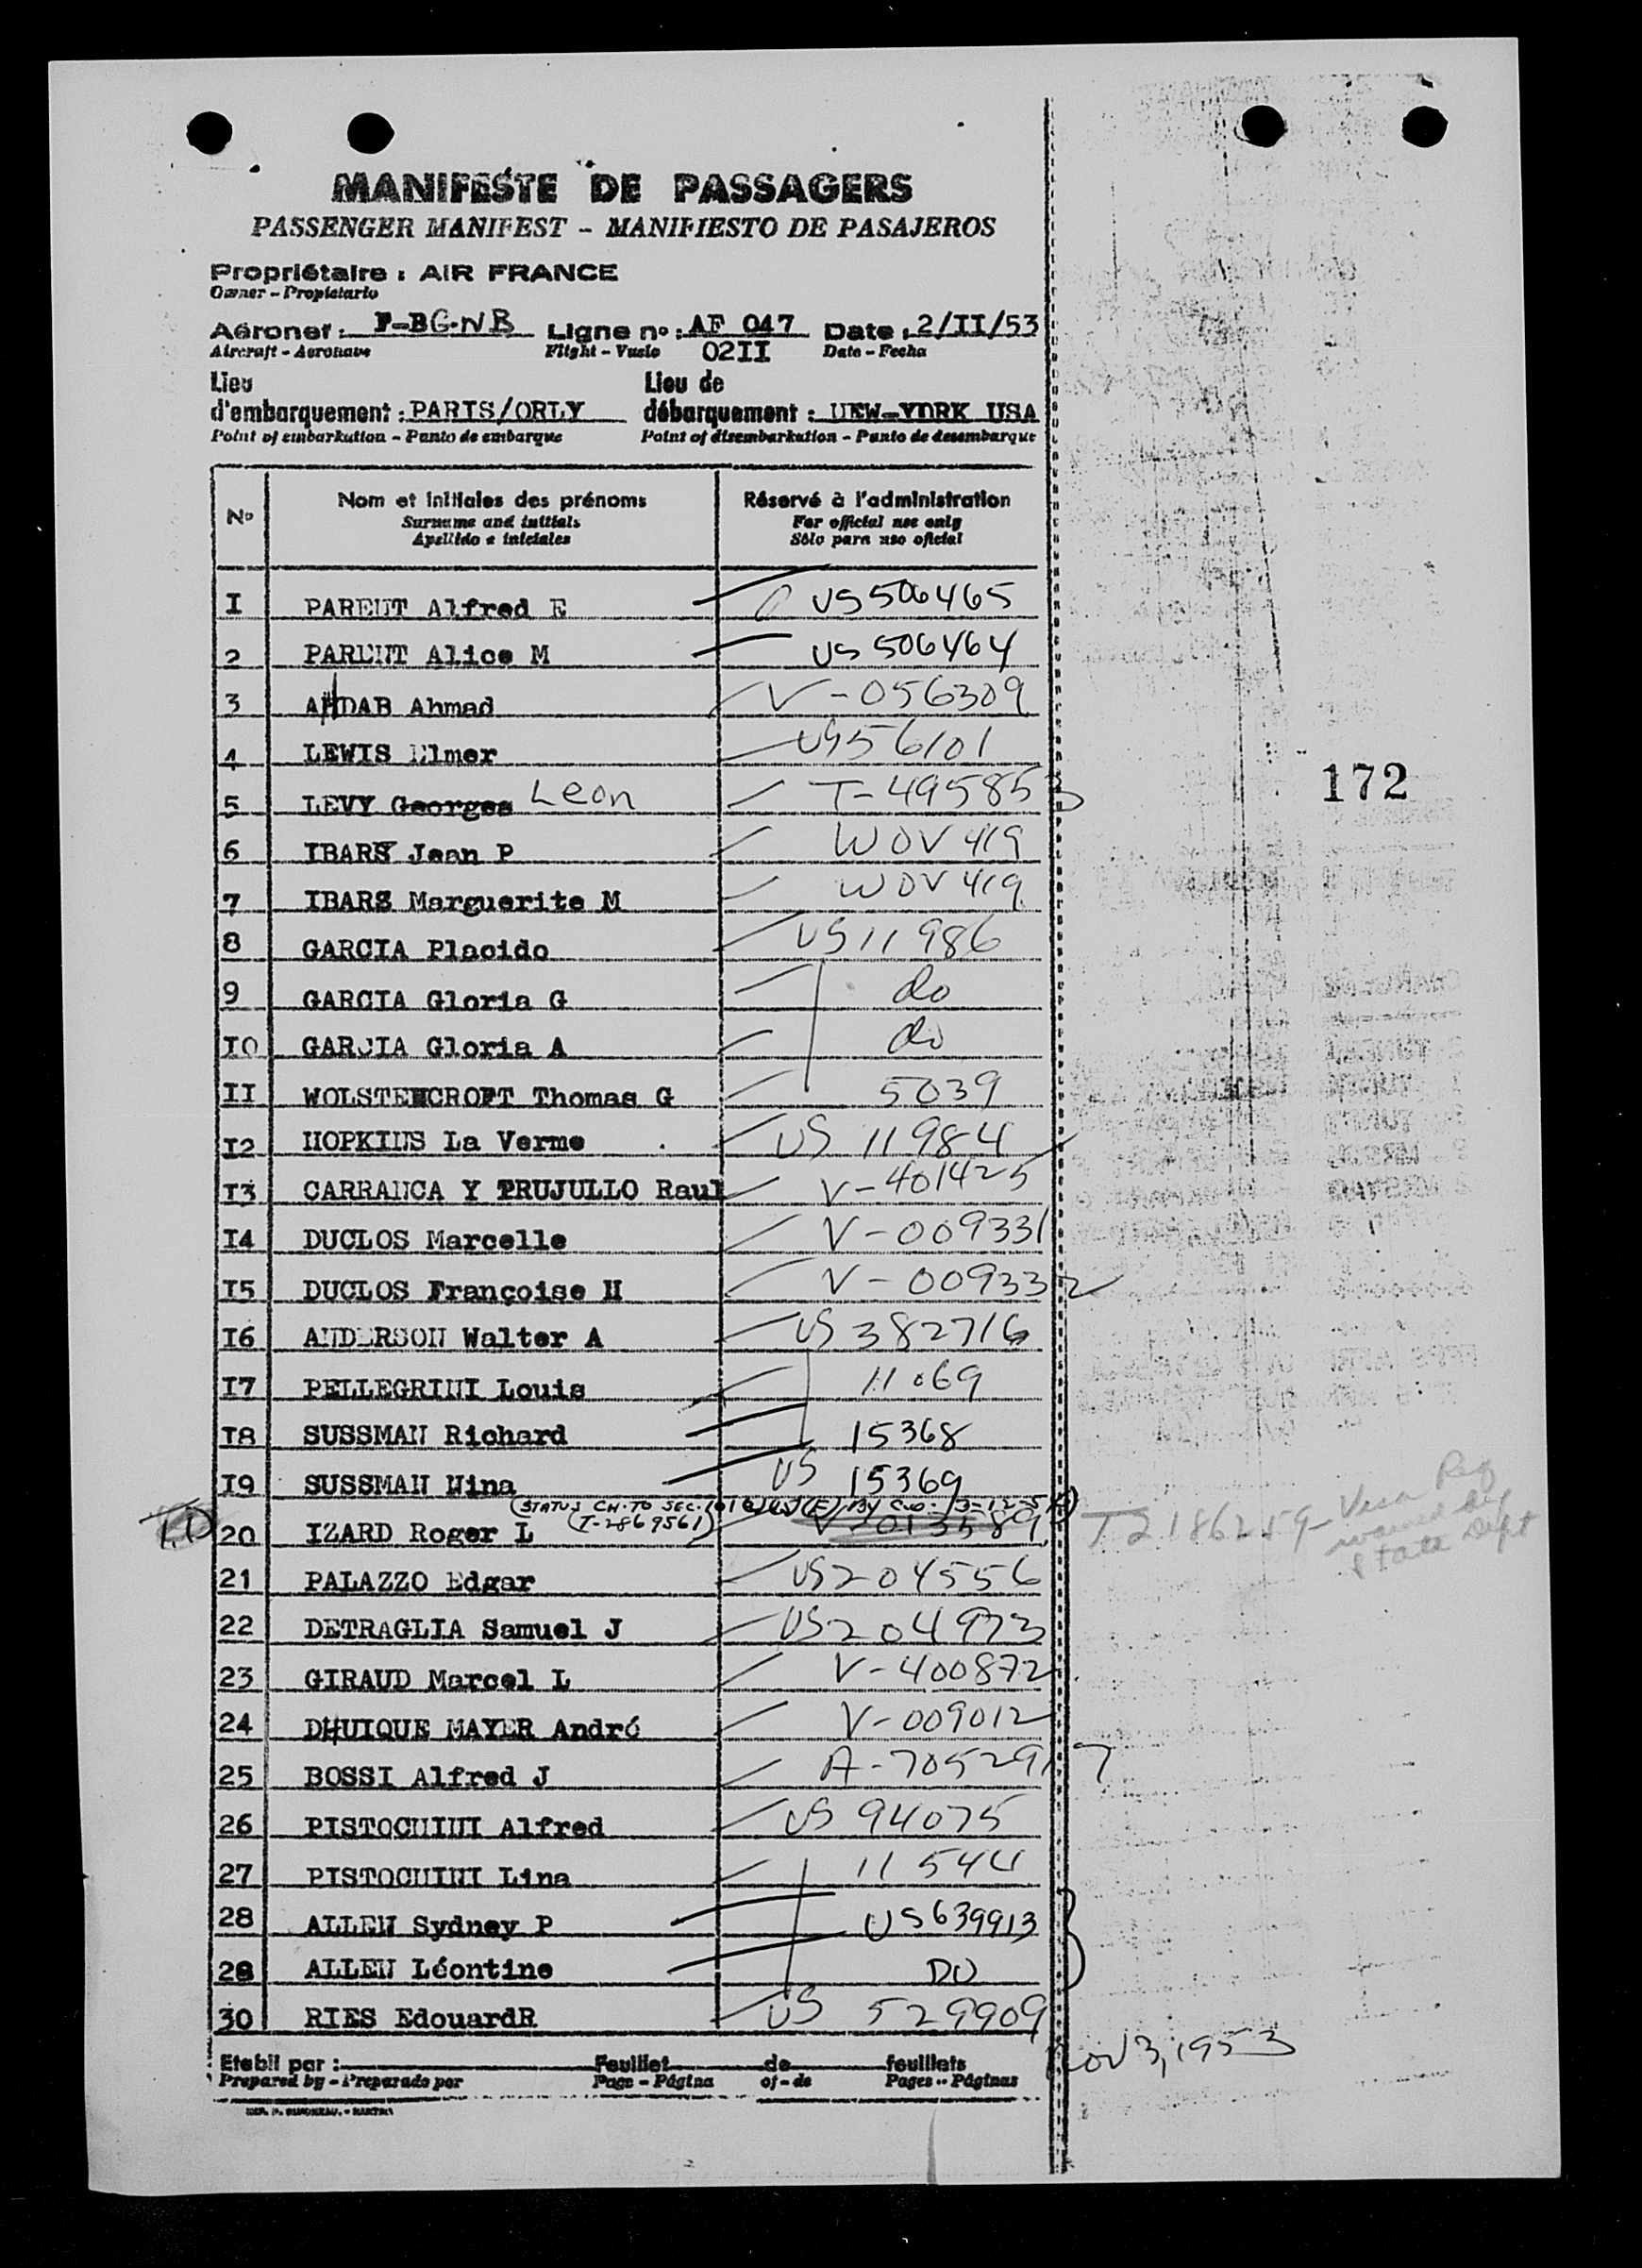 MANIFESTE DE PASSAGERS
PASSENGER MANIFEST - MANIFIESTO DE PASAJEROS
Propriétaire : AIR FRANCE
Owner - Propietario
Aéronef : F-BGNB Ligne nº : AF 047 Date : 2/II/53
Aircraft - Aeronave Flight - Vuelo 02II Date - Fecha
Lieu Lieu de
d'embarquement : PARIS/ORLY débarquement : NEW-YORK USA
Point of embarkation - Punto de embarque Point of disembarkation - Punto de desembarque
Nº Nom et initiales des prénoms Réservé à l'administration
Surname and initials For official use only
Apellido e iniciales Sólo para uso oficial
I PARENT Alfred E US 506465
2 PARENT Alice M US 506464
3 AHDAB Ahmad V-056309
4 LEWIS Elmer US 56101
172
5 LEVY Georges Leon T-495853
6 IBARS Jean P WOV 419
7 IBARS Marguerite M WOV 419
8 GARCIA Placido US 11986
9 GARCIA Gloria G do
I0 GARCIA Gloria A do
II WOLSTENCROFT Thomas G 5039
I2 HOPKINS La Verme US 11984
I3 CARRANCA Y TRUJULLO Raul V-401425
I4 DUCLOS Marcelle V-009331
I5 DUCLOS Françoise H V-009332
I6 ANDERSON Walter A US 382716
I7 PELLEGRINI Louis 11069
I8 SUSSMAN Richard 15368
I9 SUSSMAN Nina US 15369
(STATUS CH. TO SEC. 101 By C.O.
(T-2869561)
20 IZARD Roger L V-013589 T2186259 - Visa Req
waived by
State Dept
21 PALAZZO Edgar US 204556
22 DETRAGLIA Samuel J US 204973
23 GIRAUD Marcel L V-400872
24 DHUIQUE MAYER André V-009012
25 BOSSI Alfred J A-7052917
26 PISTOCHINI Alfred US 94075
27 PISTOCHINI Lina 11544
28 ALLEN Sydney P US 639913
28 ALLEN Léontine DO
30 RIES EdouardR US 529909
Nov 3, 1953
Etabli par : Feuillet de feuillets
Prepared by - Preparado por Page - Página of - de Pages - Páginas